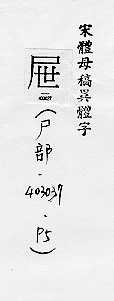 宋體母稿異體字
(尸部·403037·P5)